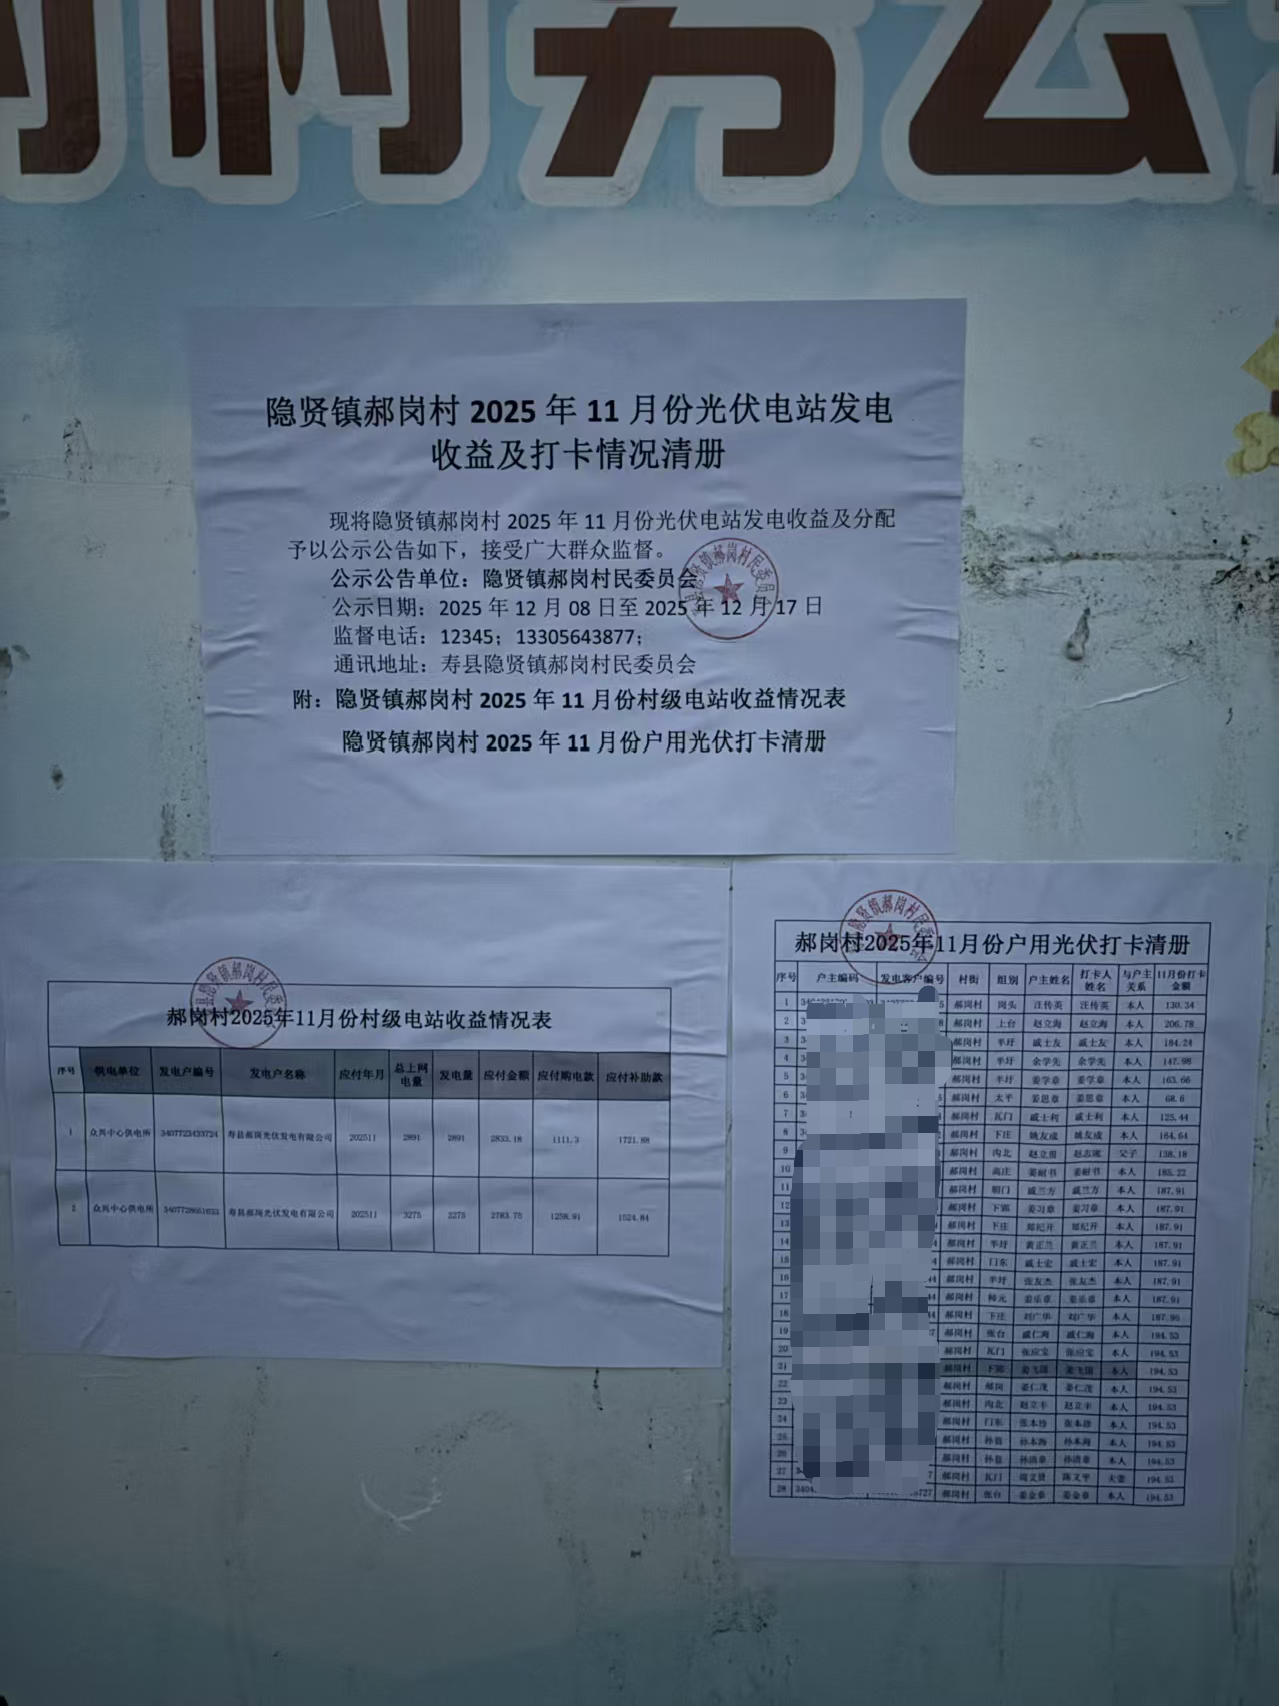 村务公
隐贤镇郝岗村 2025 年 11 月份光伏电站发电
收益及打卡情况清册
现将隐贤镇郝岗村 2025 年 11 月份光伏电站发电收益及分配
予以公示公告如下，接受广大群众监督。
公示公告单位：隐贤镇郝岗村民委员会
公示日期：2025 年 12 月 08 日至 2025 年 12 月 17 日
监督电话：12345；13305643877；
通讯地址：寿县隐贤镇郝岗村民委员会
附：隐贤镇郝岗村 2025 年 11 月份村级电站收益情况表
隐贤镇郝岗村 2025 年 11 月份户用光伏打卡清册
郝岗村2025年11月份村级电站收益情况表
序号 供电单位 发电户编号 发电户名称 应付年月 总上网电量 发电量 应付金额 应付购电款 应付补助款
1 众兴中心供电所 3407723433724 寿县郝岗光伏发电有限公司 202511 2891 2891 2833.18 1111.3 1721.88
2 众兴中心供电所 寿县郝岗光伏发电有限公司 202511 3275 3275 2783.75 1258.91 1524.84
郝岗村2025年11月份户用光伏打卡清册
序号 户主编码 发电客户编号 村街 组别 户主姓名 打卡人姓名 与户主关系 11月份打卡金额
1 郝岗村 岗头 汪传英 汪传英 本人 130.34
2 郝岗村 上台 赵立海 赵立海 本人 206.78
3 郝岗村 半圩 戚士友 戚士友 本人 184.24
4 郝岗村 半圩 余学先 余学先 本人 147.98
5 郝岗村 半圩 姜学章 姜学章 本人 163.66
6 郝岗村 太平 姜恩章 姜恩章 本人 68.6
7 郝岗村 瓦门 戚士利 戚士利 本人 125.44
8 郝岗村 下庄 姚友成 姚友成 本人 164.64
9 郝岗村 沟北 赵立 赵志 父子 138.18
10 郝岗村 高庄 姜树书 姜树书 本人 185.22
11 郝岗村 戚兰方 戚兰方 本人 187.91
12 郝岗村 下郢 姜习章 姜习章 本人 187.91
13 郝岗村 下庄 郑纪开 郑纪开 本人 187.91
14 郝岗村 半圩 黄正兰 黄正兰 本人 187.91
15 郝岗村 门东 戚士宏 戚士宏 本人 187.91
16 郝岗村 半圩 张友杰 张友杰 本人 187.91
17 郝岗村 姜乐章 姜乐章 本人 187.91
18 郝岗村 下庄 刘广华 刘广华 本人
19 郝岗村 张台 戚仁海 戚仁海 本人 194.53
20 郝岗村 瓦门 张应宝 张应宝 本人 194.53
21 郝岗村 下郢 姜飞国 姜飞国 本人 194.53
22 郝岗村 郝岗 姜仁茂 姜仁茂 本人 194.53
23 郝岗村 沟北 赵立丰 赵立丰 本人 194.53
24 郝岗村 门东 张本珍 张本珍 本人 194.53
25 郝岗村 本人 194.53
26 郝岗村 孙清章 孙清章 本人 194.53
27 郝岗村 瓦门 周文贤 陈文平 夫妻 194.53
28 郝岗村 张台 姜金章 姜金章 本人 194.53